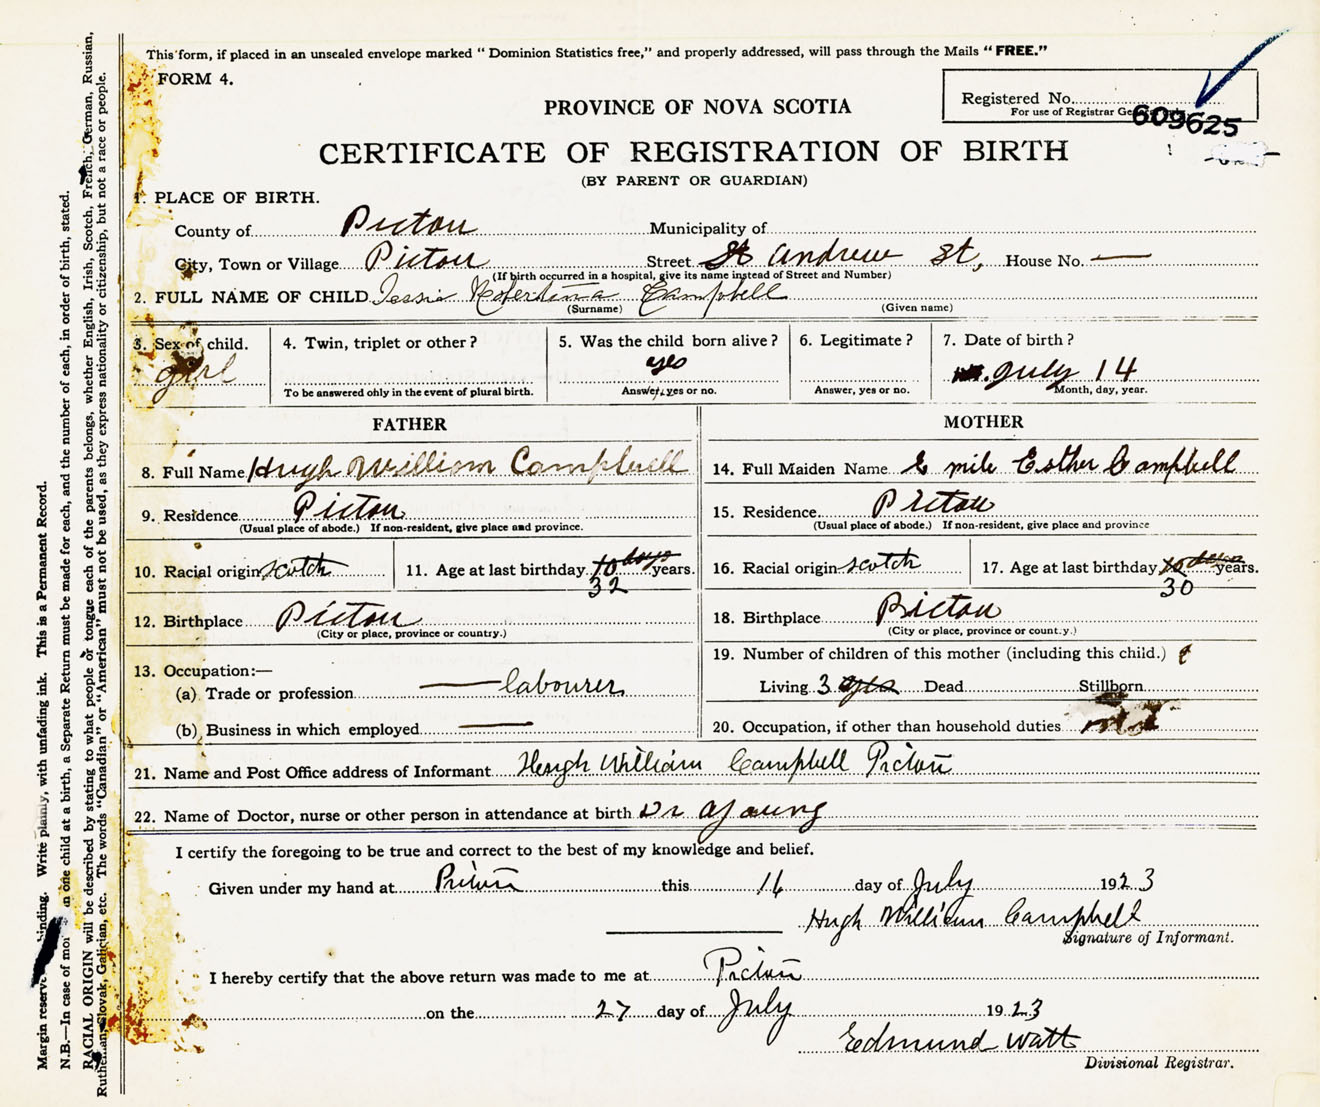 This form, if placed in an unsealed envelope marked “ Dominion Statistics free,” and properly addressed, will pass through the Mails “ FREE.”
FORM 4.
Registered No.
For use of Registrar
609625
PROVINCE OF NOVA SCOTIA
CERTIFICATE OF REGISTRATION OF BIRTH
(BY PARENT OR GUARDIAN)
1. PLACE OF BIRTH.
County of Pictou Municipality of
City, Town or Village Pictou Street St Andrew St, House No. —
(If birth occurred in a hospital, give its name instead of Street and Number)
2. FULL NAME OF CHILD Jessie Campbell
(Surname) (Given name)
3. Sex of child. 4. Twin, triplet or other ? 5. Was the child born alive ? 6. Legitimate ? 7. Date of birth ?
girl yes July 14
To be answered only in the event of plural birth. Answer, yes or no. Answer, yes or no. Month, day, year.
FATHER
8. Full Name Hugh William Campbell
9. Residence Pictou
(Usual place of abode.) If non-resident, give place and province.
10. Racial origin scotch 11. Age at last birthday 10 days years.
32
12. Birthplace Pictou
(City or place, province or country.)
13. Occupation:—
(a) Trade or profession — labourer
(b) Business in which employed —
MOTHER
14. Full Maiden Name E mile Esther Campbell
15. Residence Pictou
(Usual place of abode.) If non-resident, give place and province
16. Racial origin scotch 17. Age at last birthday 10 days years.
30
18. Birthplace Pictou
(City or place, province or country.)
19. Number of children of this mother (including this child.)
Living 3 yes Dead Stillborn
20. Occupation, if other than household duties
21. Name and Post Office address of Informant Hugh William Campbell Pictou
22. Name of Doctor, nurse or other person in attendance at birth Dr Young
I certify the foregoing to be true and correct to the best of my knowledge and belief.
Given under my hand at Pictou this 16 day of July 1923
Hugh William Campbell
Signature of Informant.
I hereby certify that the above return was made to me at Pictou
on the 27 day of July 1923
Edmund Watt
Divisional Registrar.
Margin reserved binding. Write plainly, with unfading ink. This is a Permanent Record.
N.B.—In case of one child at a birth, a Separate Return must be made for each, and the number of each, in order of birth, stated.
RACIAL ORIGIN will be described by stating to what people or tongue each of the parents belongs, whether English, Irish, Scotch, French, German, Russian,
Ruthenian, Slovak, Galician, etc. The words “Canadian” or “American” must not be used, as they express nationality or citizenship, but not a race or people.